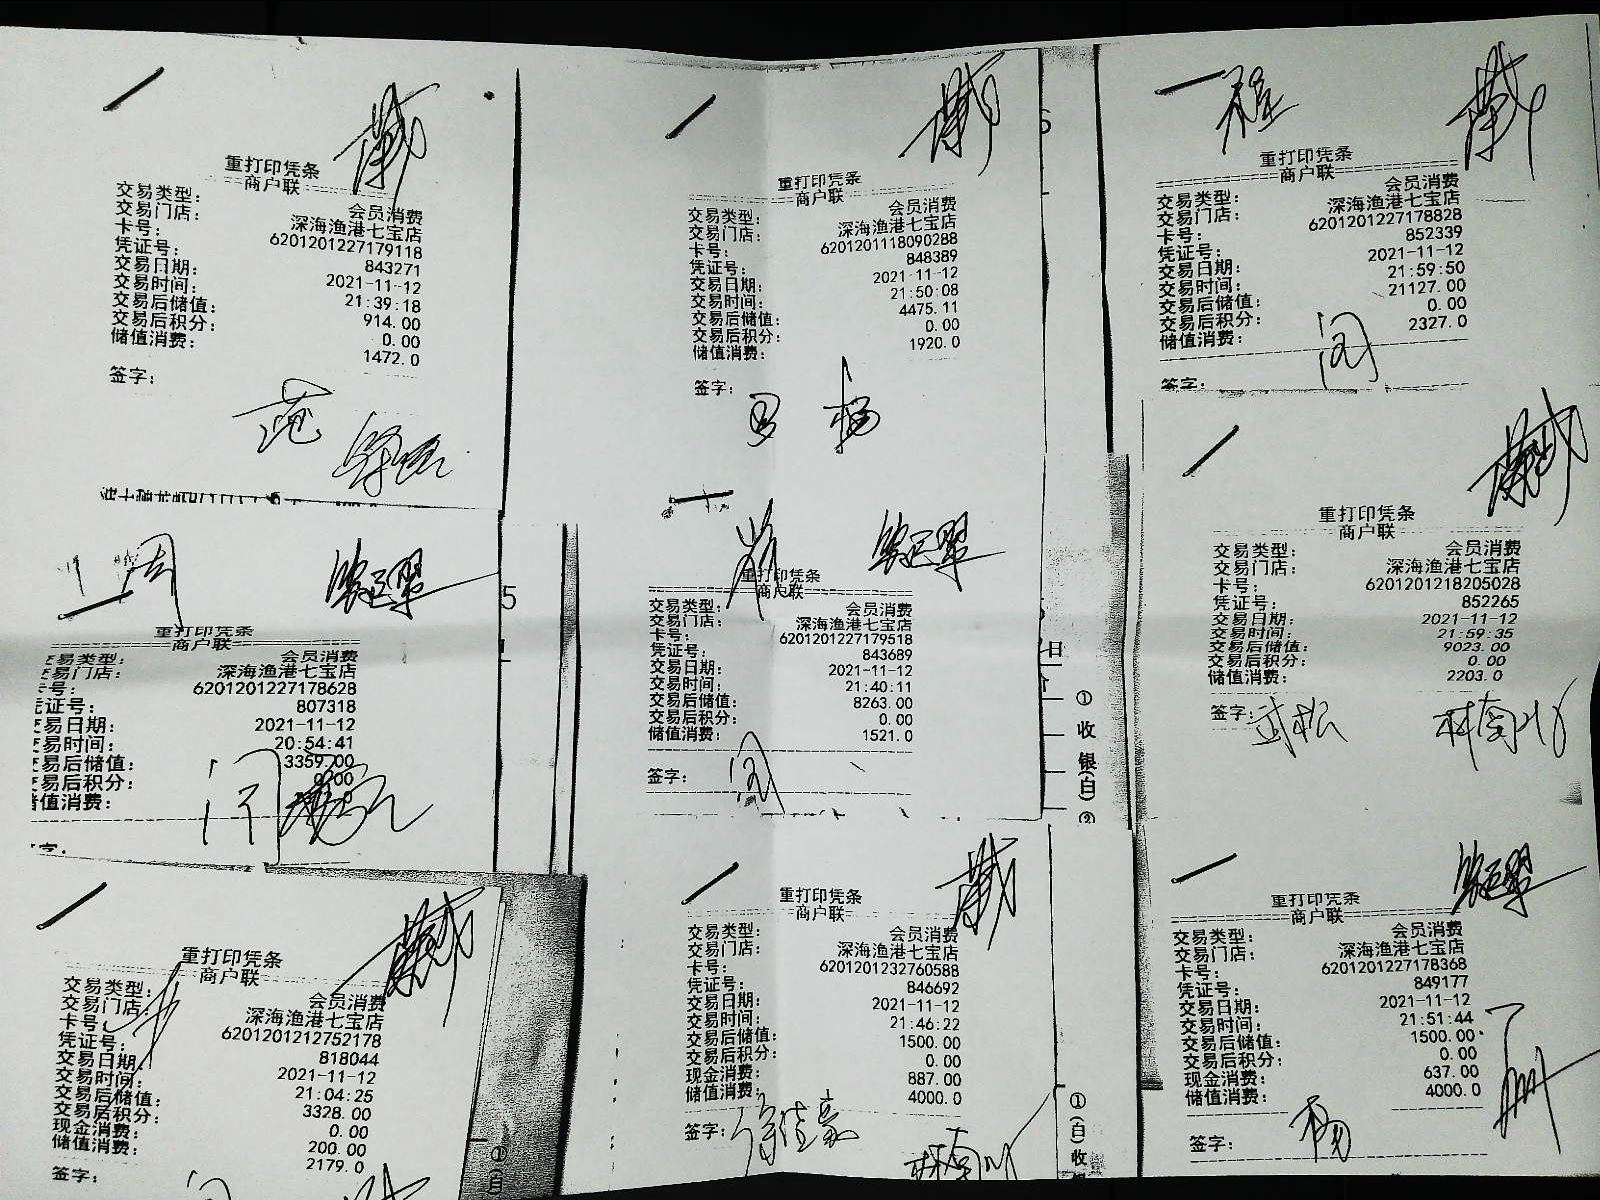 重打印凭条
商户联
交易类型: 会员消费
交易门店: 深海渔港七宝店
卡号: 6201201227179118
凭证号: 843271
交易日期: 2021-11-12
交易时间: 21:39:18
交易后储值: 914.00
交易后积分: 0.00
储值消费: 1472.0
签字:
重打印凭条
商户联
交易类型: 会员消费
交易门店: 深海渔港七宝店
卡号: 6201201118090288
凭证号: 848389
交易日期: 2021-11-12
交易时间: 21:50:08
交易后储值: 4475.11
交易后积分: 0.00
储值消费: 1920.0
签字:
重打印凭条
商户联
交易类型: 会员消费
交易门店: 深海渔港七宝店
卡号: 6201201227178828
凭证号: 852339
交易日期: 2021-11-12
交易时间: 21:59:50
交易后储值: 21127.00
交易后积分: 0.00
储值消费: 2327.0
签字:
周
重打印凭条
商户联
易类型: 会员消费
易门店: 深海渔港七宝店
号: 6201201227178628
证号: 807318
交易日期: 2021-11-12
交易时间: 20:54:41
交易后储值: 3359.00
交易后积分: 0.00
储值消费:
重打印凭条
商户联
交易类型: 会员消费
交易门店: 深海渔港七宝店
卡号: 6201201227179518
凭证号: 843689
交易日期: 2021-11-12
交易时间: 21:40:11
交易后储值: 8263.00
交易后积分: 0.00
储值消费: 1521.0
签字:
重打印凭条
商户联
交易类型: 会员消费
交易门店: 深海渔港七宝店
卡号: 6201201218205028
凭证号: 852265
交易日期: 2021-11-12
交易时间: 21:59:35
交易后储值: 9023.00
交易后积分: 0.00
储值消费: 2203.0
签字: 武松 林南川
① 收银(自) ②
重打印凭条
商户联
交易类型: 会员消费
交易门店: 深海渔港七宝店
卡号: 6201201212752178
凭证号: 818044
交易日期: 2021-11-12
交易时间: 21:04:25
交易后储值: 3328.00
交易后积分: 0.00
现金消费: 200.00
储值消费: 2179.0
签字:
①(自
重打印凭条
商户联
交易类型: 会员消费
交易门店: 深海渔港七宝店
卡号: 6201201232760588
凭证号: 846692
交易日期: 2021-11-12
交易时间: 21:46:22
交易后储值: 1500.00
交易后积分: 0.00
现金消费: 887.00
储值消费: 4000.0
签字: 徐佳豪
①(自)收
重打印凭条
商户联
交易类型: 会员消费
交易门店: 深海渔港七宝店
卡号: 6201201227178368
凭证号: 849177
交易日期: 2021-11-12
交易时间: 21:51:44
交易后储值: 1500.00
交易后积分: 0.00
现金消费: 637.00
储值消费: 4000.0
签字: 杨